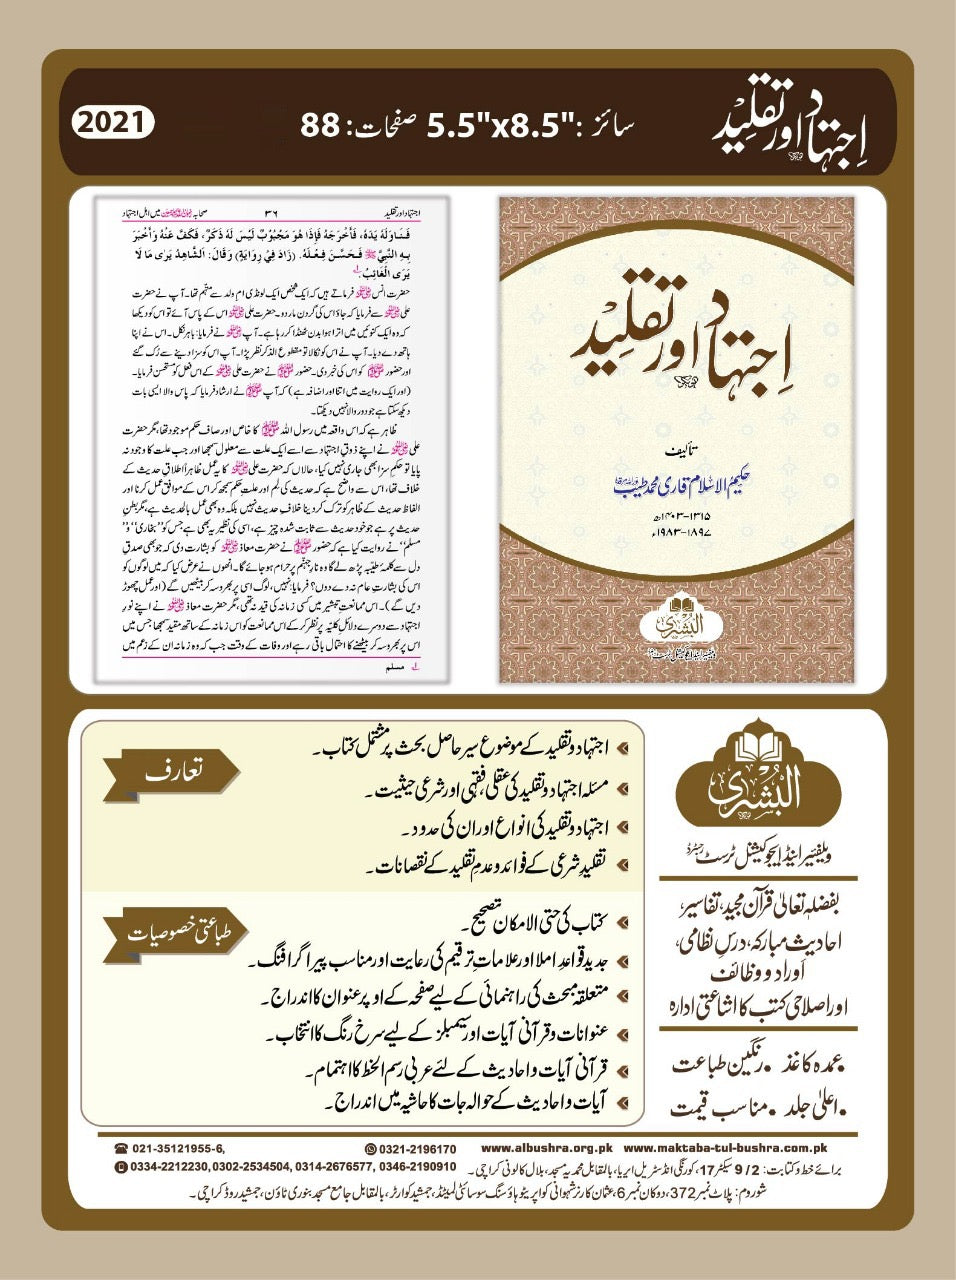 اِجتہاد اور تقلید
سائز: "5.5"x8.5 صفحات: 88
2021
اجتہاد اور تقلید ۳۶ صحابہ میں اہل اجتہاد
فَنَاوَلَهُ يَدَهُ، فَأَخْرَجَهُ فَإِذَا هُوَ مَجْبُوْبٌ لَيْسَ لَهُ ذَكَرٌ، فَكَفَّ عَنْهُ وَأَخْبَرَ
بِهِ النَّبِيَّ ﷺ فَحَسَّنَ فِعْلَهُ. (زَادَ فِيْ رِوَايَةٍ) وَقَالَ: اَلشَّاهِدُ يَرٰى مَا لَا
يَرَى الْغَائِبُ.
حضرت انس رضی اللہ عنہ فرماتے ہیں کہ ایک شخص ایک لونڈی ام ولد سے متہم تھا۔ آپ نے حضرت
علی رضی اللہ عنہ سے فرمایا کہ جاؤ اس کی گردن مار دو۔ حضرت علی رضی اللہ عنہ اس کے پاس آئے تو اس کو دیکھا
کہ وہ ایک کنوئیں میں اترا ہوا بدن ٹھنڈا کر رہا ہے۔ آپ نے فرمایا: باہر نکل۔ اس نے اپنا
ہاتھ دے دیا۔ آپ نے اس کو نکالا تو مقطوع الذکر نظر پڑا۔ آپ اس کو سزا دینے سے رُک گئے
اور حضور ﷺ کو اس کی خبر دی۔ حضور ﷺ نے حضرت علی رضی اللہ عنہ کے اس فعل کو مستحسن فرمایا۔
(اور ایک روایت میں اتنا اور اضافہ ہے) کہ آپ ﷺ نے ارشاد فرمایا کہ پاس والا ایسی بات
دیکھ سکتا ہے جو دور والا نہیں دیکھتا۔
ظاہر ہے کہ اس واقعہ میں رسول اللہ ﷺ کا خاص اور صاف حکم موجود تھا، مگر حضرت
علی رضی اللہ عنہ نے اپنے ذوقِ اجتہاد سے اسے ایک علت سے معلول سمجھا اور جب علت کا وجود نہ
پایا تو حکمِ سزا بھی جاری نہیں کیا، حالاں کہ حضرت علی رضی اللہ عنہ کا یہ عمل ظاہراً اطلاقِ حدیث کے
خلاف تھا، اس سے واضح ہے کہ حدیث کی لِم اور علتِ حکم سمجھ کر اس کے موافق عمل کرنا اور
الفاظِ حدیث کے ظاہر کو ترک کر دینا خلافِ حدیث نہیں بلکہ وہ بھی عمل بالحدیث ہے، مگر بطنِ
حدیث پر ہے جو خود حدیث سے ثابت شدہ چیز ہے، اسی کی نظیر یہ بھی ہے جس کو ’’بخاری‘‘ و’’
مسلم‘‘ نے روایت کیا ہے کہ حضور ﷺ نے حضرت معاذ رضی اللہ عنہ کو بشارت دی کہ جو بھی صدقِ
دل سے کلمۂ طیبہ پڑھ لے گا وہ نارِ جہنم پر حرام ہو جائے گا۔ انھوں نے عرض کیا کہ میں لوگوں کو
اس کی بشارتِ عام نہ دے دوں؟ فرمایا: نہیں، لوگ اسی پر بھروسہ کر بیٹھیں گے (اور عمل چھوڑ
دیں گے)۔ اس ممانعتِ تبشیر میں کسی زمانہ کی قید نہ تھی، مگر حضرت معاذ رضی اللہ عنہ نے اپنے نورِ
اجتہاد سے دوسرے دلائلِ کلیہ پر نظر کر کے اس ممانعت کو اس زمانہ کے ساتھ مقید سمجھا جس میں
اس پر بھروسہ کر بیٹھنے کا احتمال باقی رہے اور وفات کے وقت جب کہ وہ زمانہ ان کے زعم میں
لے مسلم
اِجتہاد اور تقلید
تألیف
حکیم الاسلام قاری محمد طیب
۱۳۱۵–۱۴۰۳ھ
۱۸۹۷–۱۹۸۳ء
البشریٰ
ویلفیئر اینڈ ایجوکیشنل ٹرسٹ
تعارف
اجتہاد و تقلید کے موضوع سیر حاصل بحث پر مشتمل کتاب۔
مسئلہ اجتہاد و تقلید کی عقلی، فقہی اور شرعی حیثیت۔
اجتہاد و تقلید کی انواع اور ان کی حدود۔
تقلیدِ شرعی کے فوائد و عدمِ تقلید کے نقصانات۔
طباعتی خصوصیات
کتاب کی حتی الامکان تصحیح۔
جدید قواعدِ املا اور علاماتِ ترقیم کی رعایت اور مناسب پیراگرافنگ۔
متعلقہ مبحث کی راہنمائی کے لیے صفحہ کے اوپر عنوان کا اندراج۔
عنوانات و قرآنی آیات اور سیمبلز کے لیے سرخ رنگ کا انتخاب۔
قرآنی آیات و احادیث کے لئے عربی رسم الخط کا اہتمام۔
آیات و احادیث کے حوالہ جات کا حاشیہ میں اندراج۔
البشریٰ
ویلفیئر اینڈ ایجوکیشنل ٹرسٹ رجسٹرڈ
بفضلہٖ تعالیٰ قرآن مجید، تفاسیر،
احادیث مبارکہ، درسِ نظامی،
اَوراد و وظائف
اور اصلاحی کتب کا اشاعتی ادارہ
• عمدہ کاغذ • رنگین طباعت
• اعلیٰ جلد • مناسب قیمت
021-35121955-6, 0321-2196170 www.albushra.org.pk www.maktaba-tul-bushra.com.pk
0334-2212230, 0302-2534504, 0314-2676577, 0346-2190910 برائے خط و کتابت: 2/9 سیکٹر 17، کورنگی انڈسٹریل ایریا، بالمقابل محمدیہ مسجد، بلال کالونی کراچی۔
شوروم: پلاٹ نمبر 372، دوکان نمبر 6، عثمان کارنر شہوانی کوآپریٹو ہاؤسنگ سوسائٹی لمیٹڈ، جمشید کوارٹر، بالمقابل جامع مسجد بنوری ٹاؤن، جمشید روڈ کراچی۔